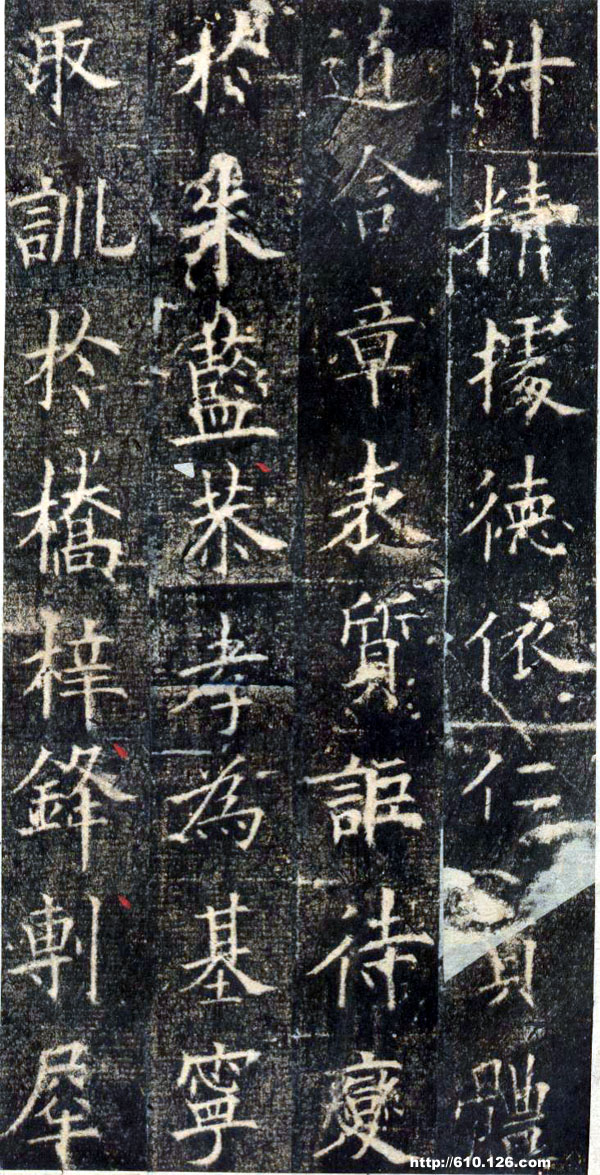 淑精據德依仁貞體
道含章表質詎待變
於朱藍恭孝為基寧
取訓於橋梓鋒剸犀
http://610.126.com